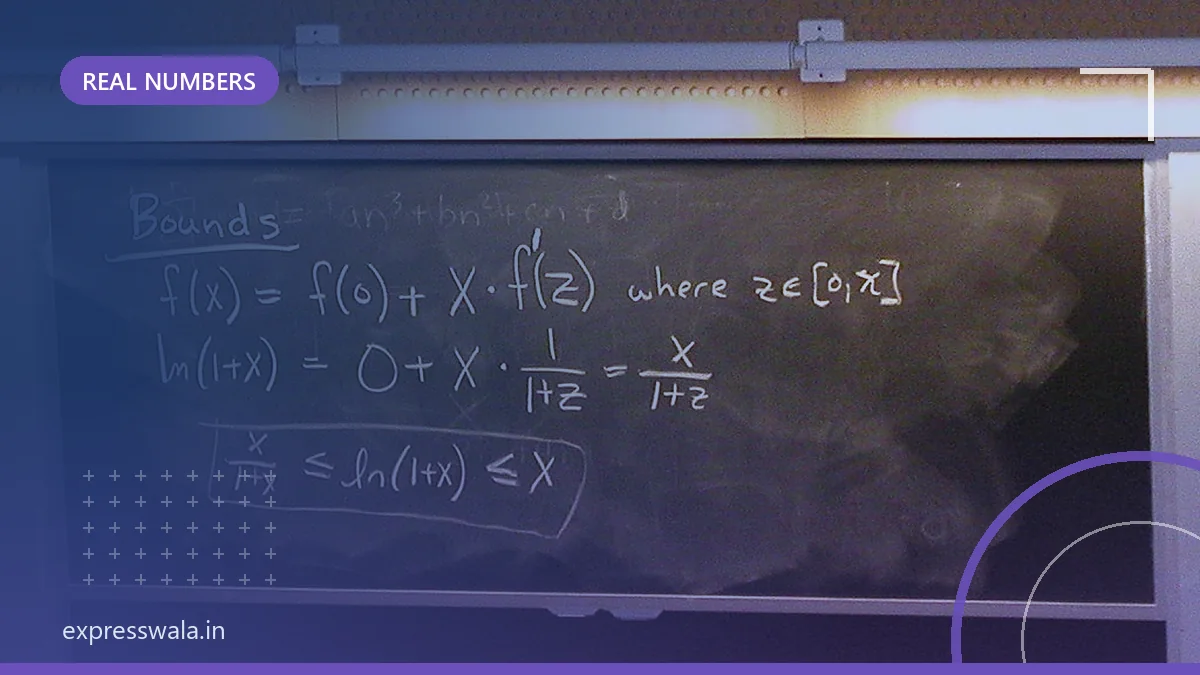 REAL NUMBERS
Bounds
f(x) = f(0) + x · f'(z) where z ∈ [0, x]
ln(1+x) = 0 + x · 1/(1+z) = x/(1+z)
x/(1+x) ≤ ln(1+x) ≤ x
expresswala.in